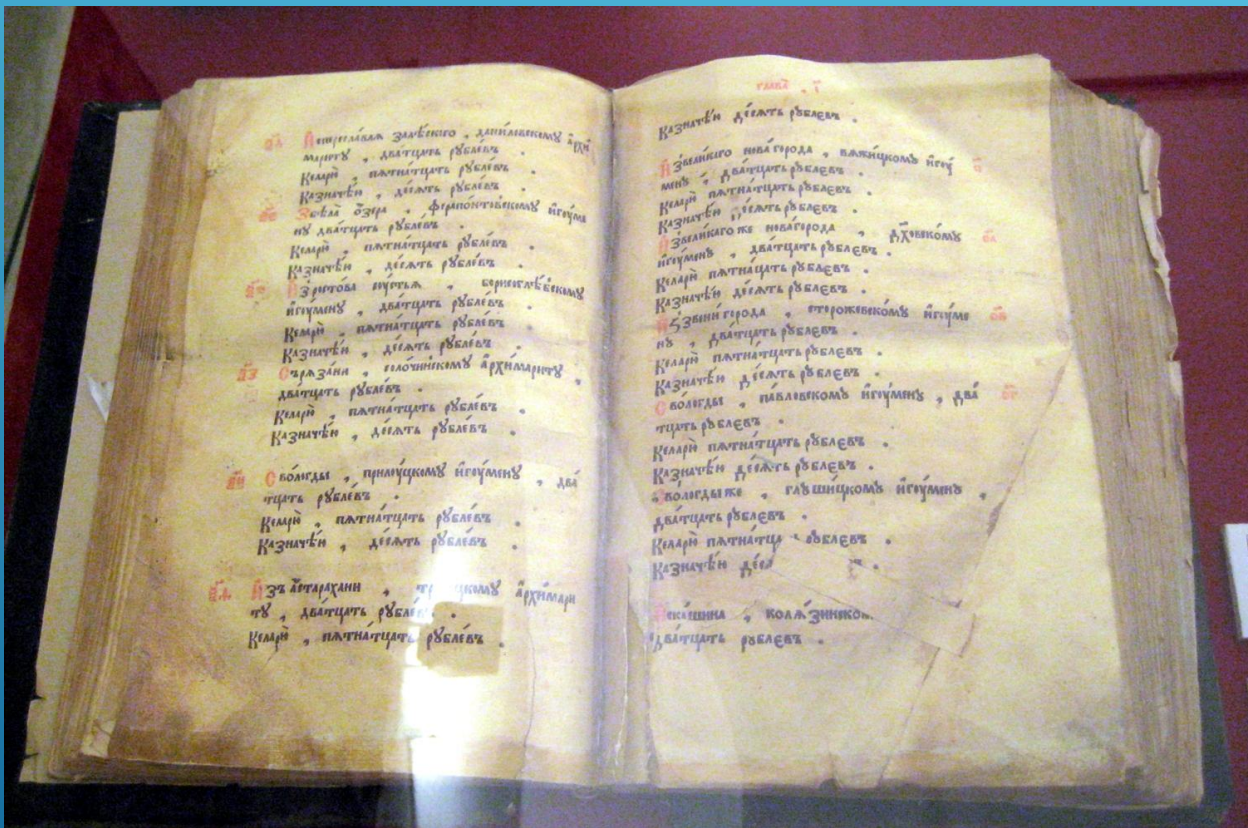 ѯ҃д И҆переславля залѣ́скаго , дани́ловскому а҆рхи
мариту , два́тцать рꙋбле́въ .
Келарю̀ , пятна́тцать рꙋбле́въ .
Казначе́ю , де́сять рꙋбле́въ .
ѯ҃е Збѣ́ла ѻ҆́зера , ферапо́нтовскому и҆гꙋме
нꙋ два́тцать рꙋбле́въ .
Келарю̀ , пятна́тцать рꙋбле́въ .
Казначе́ю , де́сять рꙋбле́въ .
ѯ҃ѕ И҆зросто́ва сꙋстья , борисоглѣ́бскому
и҆гꙋ́менꙋ , два́тцать рꙋбле́въ .
Келарю̀ , пятна́тцать рꙋбле́въ .
Казначѣ́и , де́сять рꙋбле́въ .
ѯ҃з Сърязани , солочи́нскомꙋ а҆рхи́маритꙋ ,
два́тцать рꙋбле́въ .
Келарю̀ , пятна́тцать рꙋбле́въ .
Казначѣ́и , де́сять рꙋбле́въ .
ѯ҃и С вологды , прилꙋцкомꙋ и҆гꙋ́менꙋ , два́
тцать рꙋбле́въ .
Келарю̀ , пятна́тцать рꙋбле́въ .
Казначѣ́и , де́сять рꙋбле́въ .
ѯ҃ѳ И҆зъ а҆́старахани , а҆рхи́мари
тꙋ , два́тцать рꙋбле́въ
Келарю̀ , пятна́тцать рꙋбле́въ .
глава̀ . і҃
Казначѣ́и де́сять рꙋблевъ .
И҆звели́каго нова́города , вяжицкомꙋ и҆гꙋ́ о҃
менꙋ , два́тцать рꙋблевъ .
Келарю̀ пятна́тцать рꙋблевъ .
Казначѣ́и де́сять рꙋблевъ .
И҆звели́каго же нова́города , дх҃овскомꙋ о҃а
и҆гꙋ́менꙋ , два́тцать рꙋблевъ .
Келарю̀ пятна́цать рꙋблевъ .
Казначѣ́и де́сять рꙋблевъ .
И҆ззвени́города , сторожевскомꙋ и҆гꙋ́ме о҃в
нꙋ , два́тцать рꙋблевъ .
Келарю̀ пятна́тцать рꙋблевъ .
Казначѣ́и де́сять рꙋблевъ .
С во́логды , па́вловскомꙋ и҆гꙋ́менꙋ , два́ о҃г
тцать рꙋблевъ .
Келарю̀ пятна́тцать рꙋблевъ .
Казначѣ́и де́сять рꙋблевъ .
во́логды же , глꙋши́цкомꙋ и҆гꙋ́менꙋ ,
два́тцать рꙋблевъ .
Келарю̀ пятна́тца рꙋблевъ .
Казначѣ́и деся
колязинском
два́тцать рꙋблевъ .